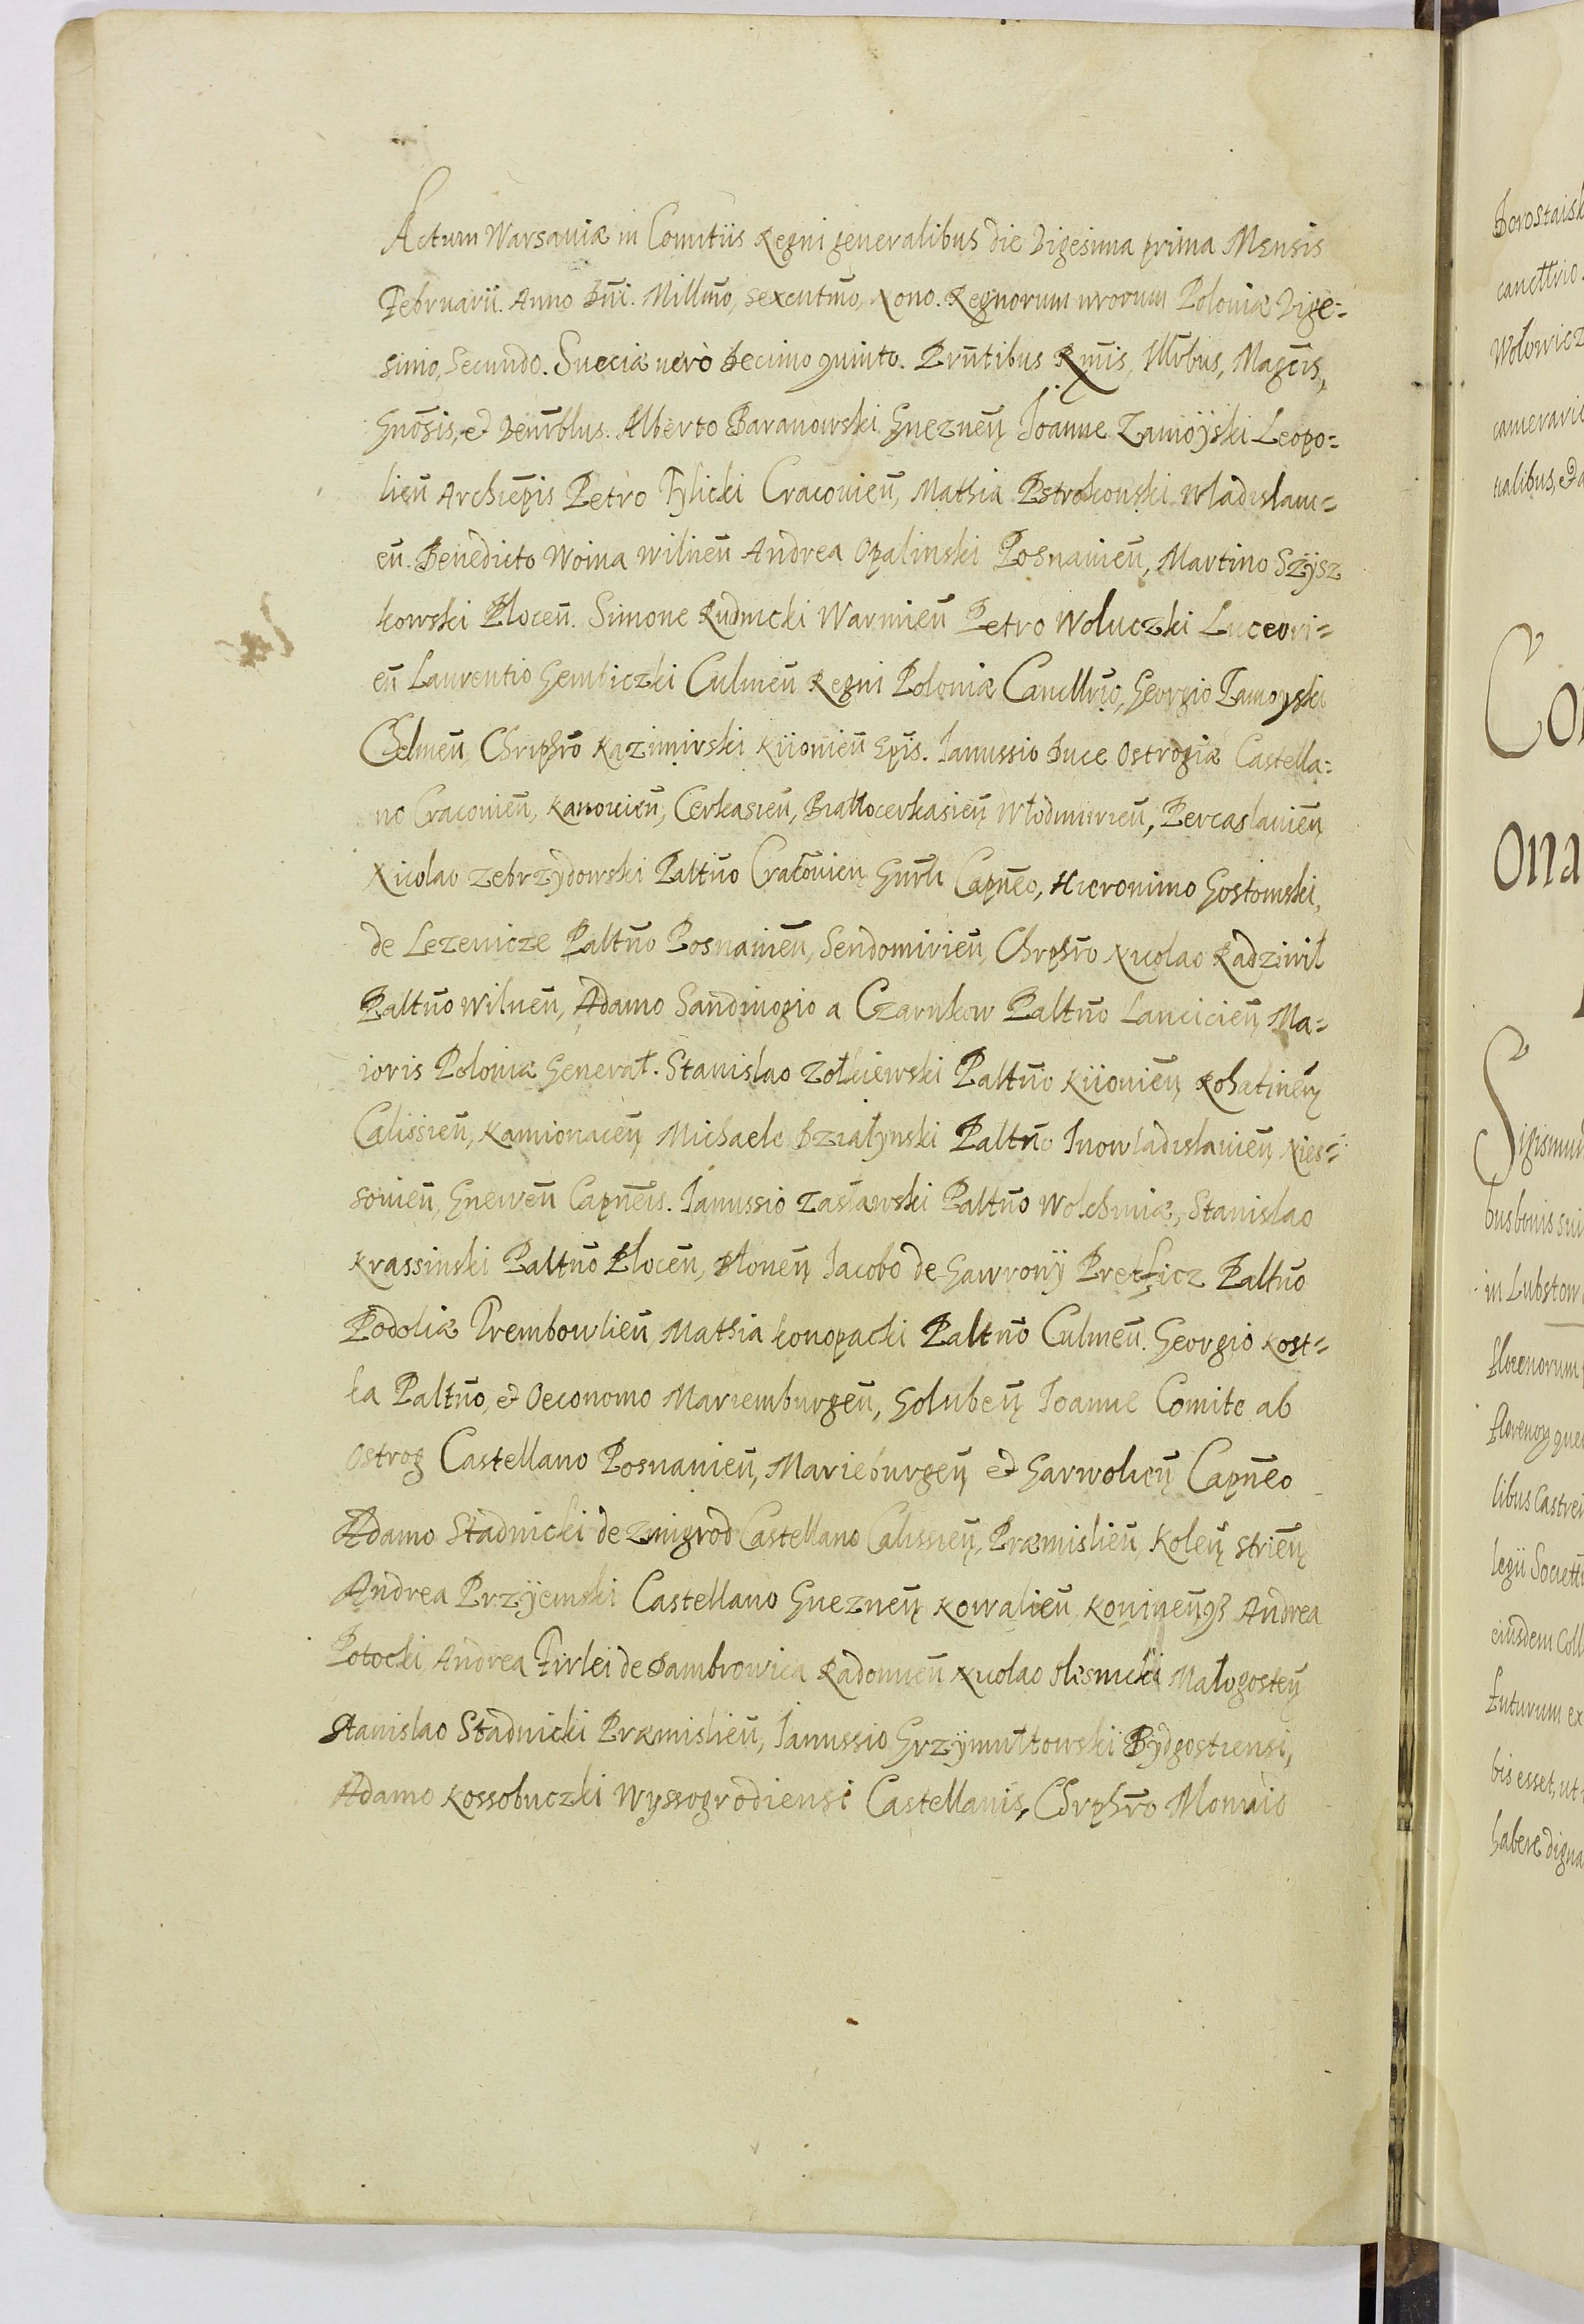 Actum Warsaviæ in Comitiis Regni generalibus die Vigesima prima Mensis
Februarii. Anno Dni. Millmo, sexcentmo, Nono. Regnorum nrorum Poloniæ Vige=
simo, Secundo. Sueciæ verò Decimo quinto. Prntibus Rmis, Illrbus, Magcis,
Gnosis, et Venrblus. Alberto Baranowski Gneznen Ioanne Zamoÿski Leopo=
lien Archiepis Petro Tylicki Cracovien, Mathia Pstrokonski Wladislavi=
en. Benedicto Woina Wilnen Andrea Opalinski Posnanien, Martino Szÿsz
kowski Plocen. Simone Rudnicki Warmien Petro Woluczki Luceori=
en Laurentio Gembiczki Culmen Regni Poloniæ Cancllrio, Georgio Zamoyski
Chelmen, Chrphro Kazimirski Kiiovien Epis. Ianussio Duce Ostrogiæ Castella=
no Cracovien, Kanovien, Cerkasien, Białłocerkasien Włodimirien, Percaslavien
Nicolao Zebrzydowski Paltno Cracovien Gnrli Capneo, Hieronimo Gostomski,
de Lezenicze Paltno Posnanien, Sendomirien, Chrphro Nicolao Radziwił
Paltno Wilnen, Adamo Sandivogio a Czarnkow Paltno Lancicien, Ma=
ioris Poloniæ Generał. Stanislao Zołkiewski Paltno Kiiovien, Rohatinen
Calissien, Kamionacen Michaele Działynski Paltno Inowladislavien, Nies=
sovien, Gnewen Capneis. Ianussio Zasławski Paltno Wolchiniæ, Stanislao
Krassinski Paltno Plocen, Plonen Iacobo de Gawronÿ Pretficz Paltno
Podoliæ Trembowlien, Mathia Konopacki Paltno Culmen. Georgio Kost=
ka Paltno, et Oeconomo Mariemburgen, Goluben Ioanne Comite ab
Ostrog Castellano Posnanien, Marieburgen et Garwolien Capneo
Adamo Stadnicki de Zmigrod Castellano Calissien, Præmislien, Kolen, Strien
Andrea Przÿemski Castellano Gneznen Kowalien Koninenq3 Andrea
Potocki, Andrea Firlei de Dambrowica Radomien Nicolao Olesnicki Małogosten
Stanislao Stadnicki Præmislien, Ianussio Grzÿmułtowski Bÿdgostiensi,
Adamo Kossobuczki Wyssogrodiensi Castellanis, Chrphro Monuid
Dorostaisk
cancttrio.
Wołowicz
camerario
nalibus, et a
Con
ona
Sigismun
bus bonis sui
in Lubstow
Plocenorum
florenoy que
libus Castren
legii Societt
eiusdem Coll
futurum ex
bis esset, ut
habere digna